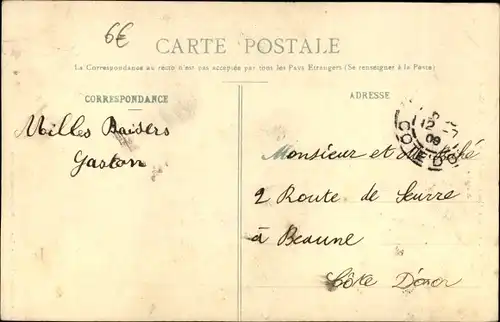 6€
CARTE POSTALE
La Correspondance au recto n'est pas acceptée par tous les Pays Etrangers (Se renseigner à la Poste)
CORRESPONDANCE
ADRESSE
Milles Baisers
Gaston
Monsieur et
2 Route de Seurre
à Beaune
Côte D'or
12
09